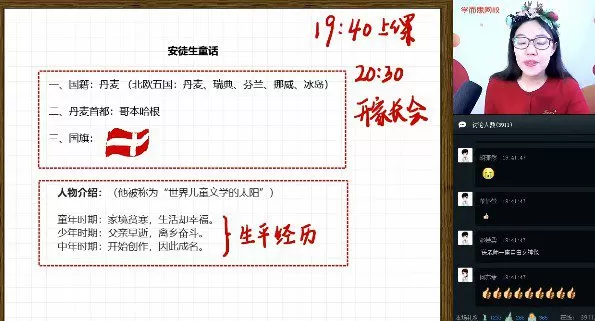 安徒生童话
19:40上课
20:30
开家长会
一、国籍：丹麦 （北欧五国：丹麦、瑞典、芬兰、挪威、冰岛）
二、丹麦首都：哥本哈根
三、国旗：
人物介绍：（他被称为“世界儿童文学的太阳”）
童年时期：家境贫寒，生活却幸福。
少年时期：父亲早逝，离乡奋斗。
中年时期：开始创作，因此成名。
生平经历
学而思网校
讨论人数(3911)
19:41:47
19:41:47
19:41:47
19:41:47